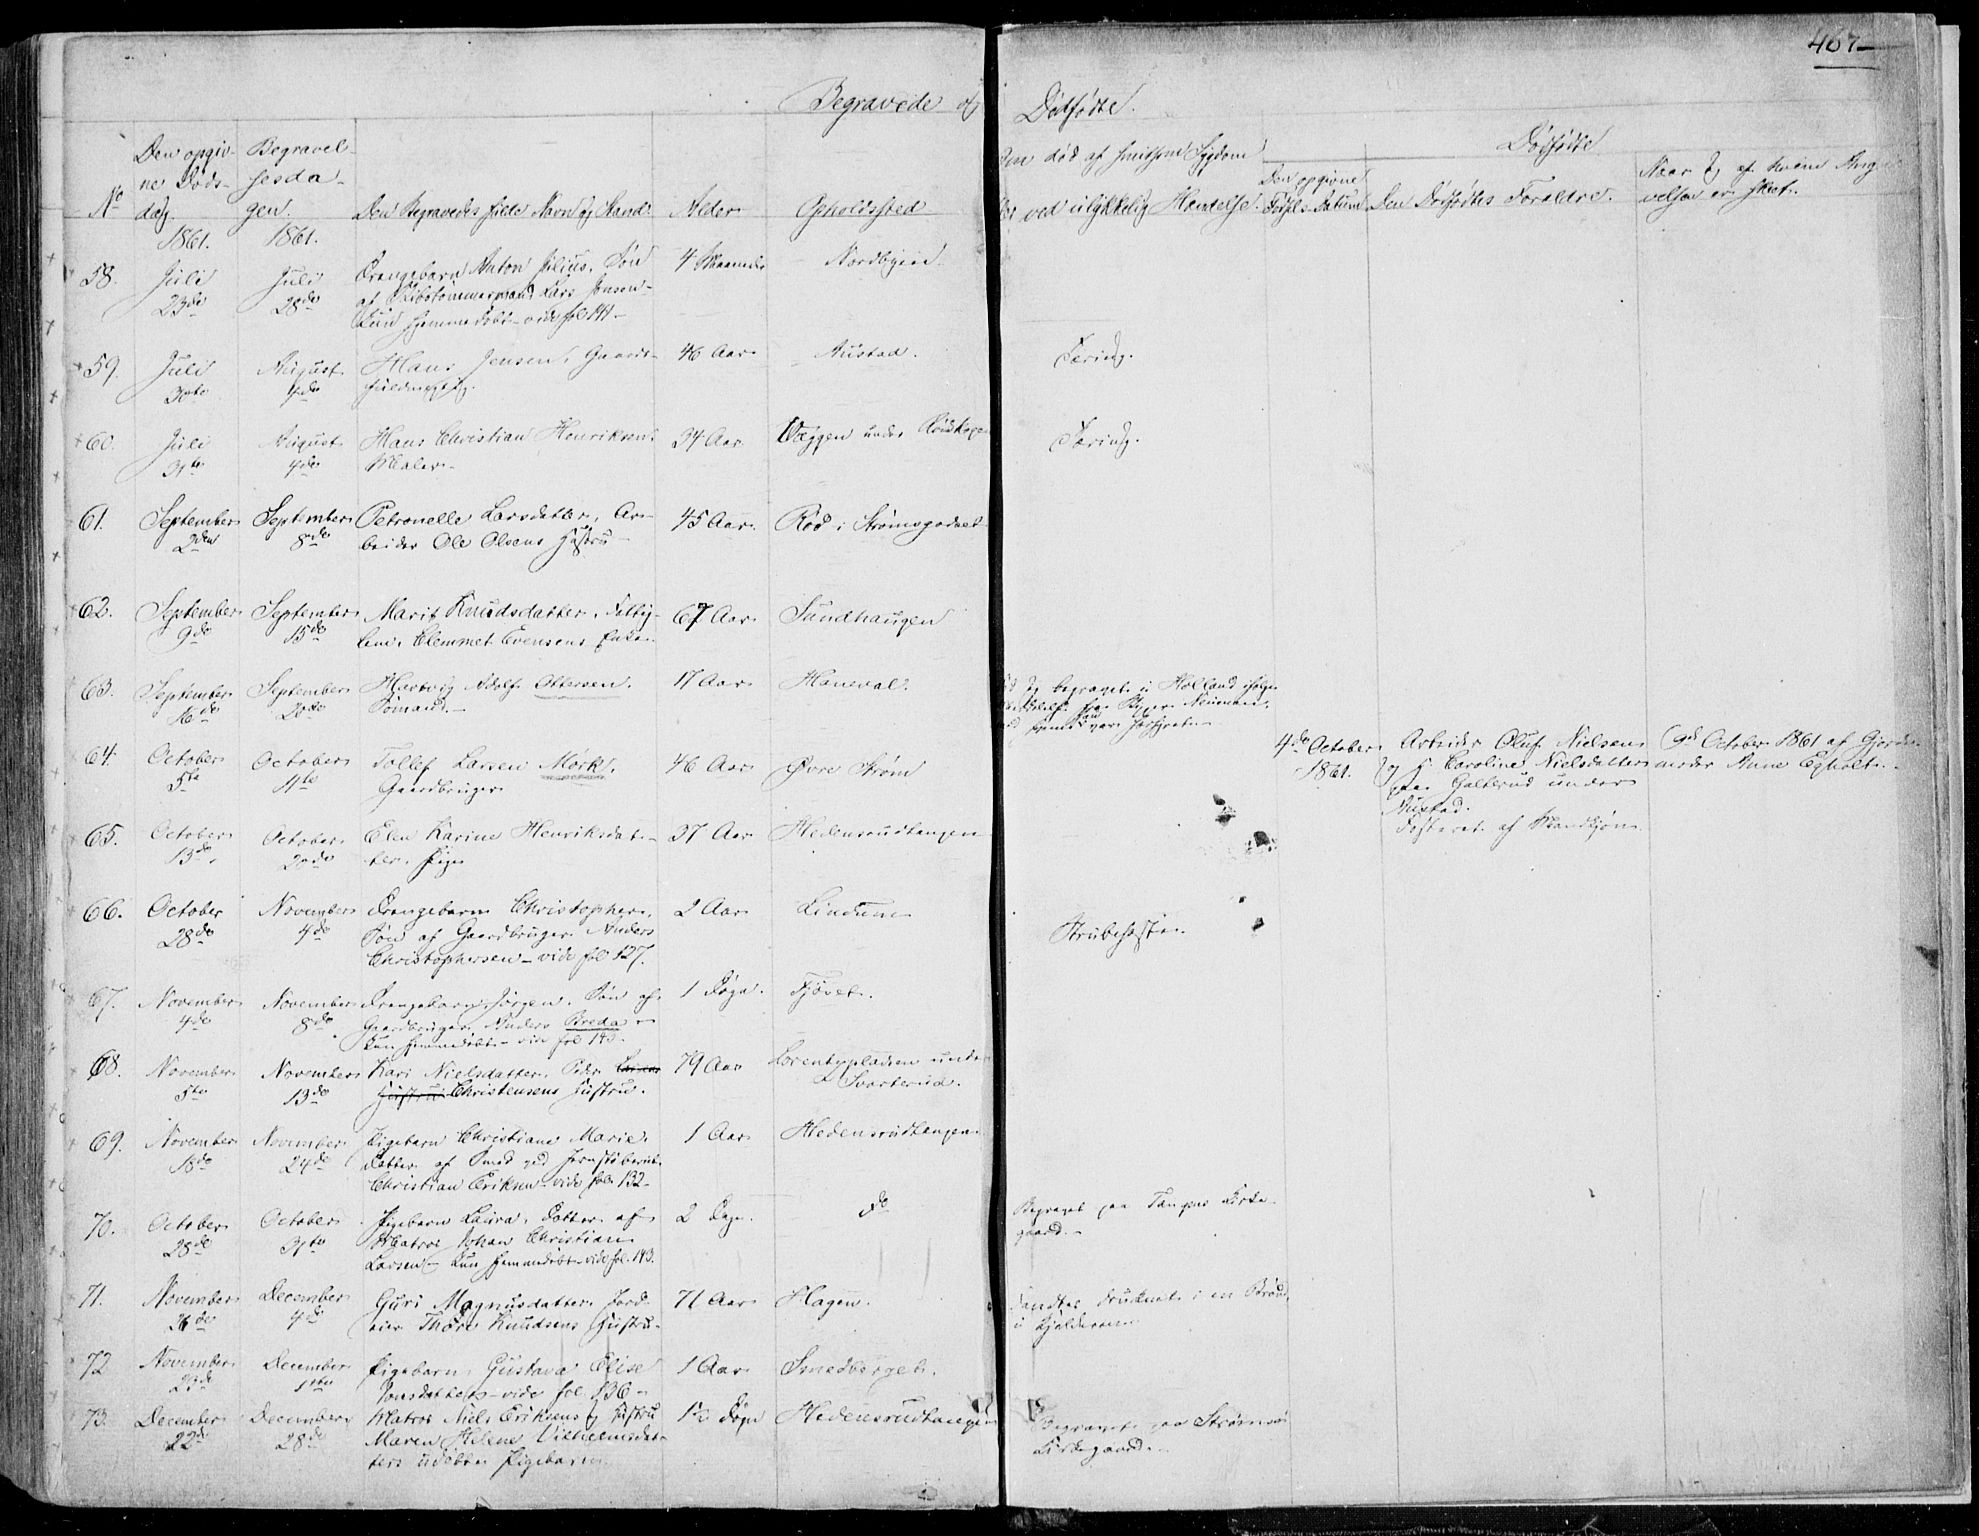 467
Begravede og Dødfødte.
No
Den opgiv-
ne Døds-
dag.
Begravel-
sesda-
gen.
Den Begravedes fulde Navn og Stand.
Alder
Opholdssted
død af smitsom Sygdom
ved ulykkelig Hændelse.
Dødfødte
Den opgivne
Fødsels Datum
Den Dødfødtes Forældre.
Naar og af hvem Ang
velsen er skeet.
1861. 1861.
58. Juli Juli Drengebarn Anton Julius, Søn 4 Maaneder Nordbyen
23de 28de af Skibstømmermand Lars Jensen-
Kun hjemmedøbt - vide fol 141 -
59. Juli August Hans Jensen, Gaard- 46 Aar Austad. Tæring.
30te 4de
60. Juli August Hans Christian Henriksen 34 Aar Væggen under Tæring.
31te 4de Maler-
61. September September Petronelle Larsdatter, Ar- 45 Aar. Rød i Strømsgodset
2den 8de beider Ole Olsens Hustru -
62. September September Marit Knudsdatter, 67 Aar Sundhaugen
9de 15de Clemmet Evensens Enke -
63. September September Hartvig Adolf Ottersen. 17 Aar Haneval.
16de 20de Sømand. -
og begravet i Holland ifølge
64. October October Tollef Larsen Mørk, 46 Aar Øvre Strøm
5te 11te Gaardbruger
4de October Arbeider Oluf Nielsen 9de October 1861 af Gjorde-
1861. og H. Caroline Nielsdatter moder Anne Egholt -
paa Galterud under
Austad.
Fosteret af Mandkjøn.
65. October October Elen Karine Henriksdat- 37 Aar Hedensrudtangen
13de 20de ter, Pige
66. October November Drengebarn Christopher, 2 Aar Lindum Strubehoste.
28de 4de Søn af Gaardbruger Anders
Christophersen - vide fol 127.
67. November November Drengebarn Jørgen, Søn af 1 Døgn. Tjøset.
4de 8de Gaardbruger Anders Breda -
Kun hjemmedøbt - vide fol 143.
68. November November Kari Nielsdatter, Peder Larsens 79 Aar Lorentzpladsen under
5te 13de Hustru Christensens Hustru. Svarterud.
69. November November Pigebarn Christiane Marie, 1 Aar Hedensrudtangen
18de 24de Datter af Smed ved Jernstøberiet
Christian Eriksen - vide fol 132 -
70. October October Pigebarn Laura, Datter af 2 Dage. do Begravet paa Tangens Kirke-
28de 31te Matros Johan Christian gaard. -
Larsen - Kun hjemmedøbt - vide fol. 143.
71. November December Guri Magnusdatter Jord- 71 Aar Hagen. Fandtes druknet i en Brønd
26de 4de eier Thore Knudsens Hustru. i Kjelderen
72 November December Pigebarn Gustava Elise 1 Aar Smedberget.
23de 1ste Jonsdatter - vide fol 136 -
73. December December Matros Niels Eriksens og Hustru 1½ Døgn Hedensrudtangen Begravet paa Strømsø
22de 28de Maren Helene Vilhelmsdat- Kirkegaard. -
ters udøbte Pigebarn.